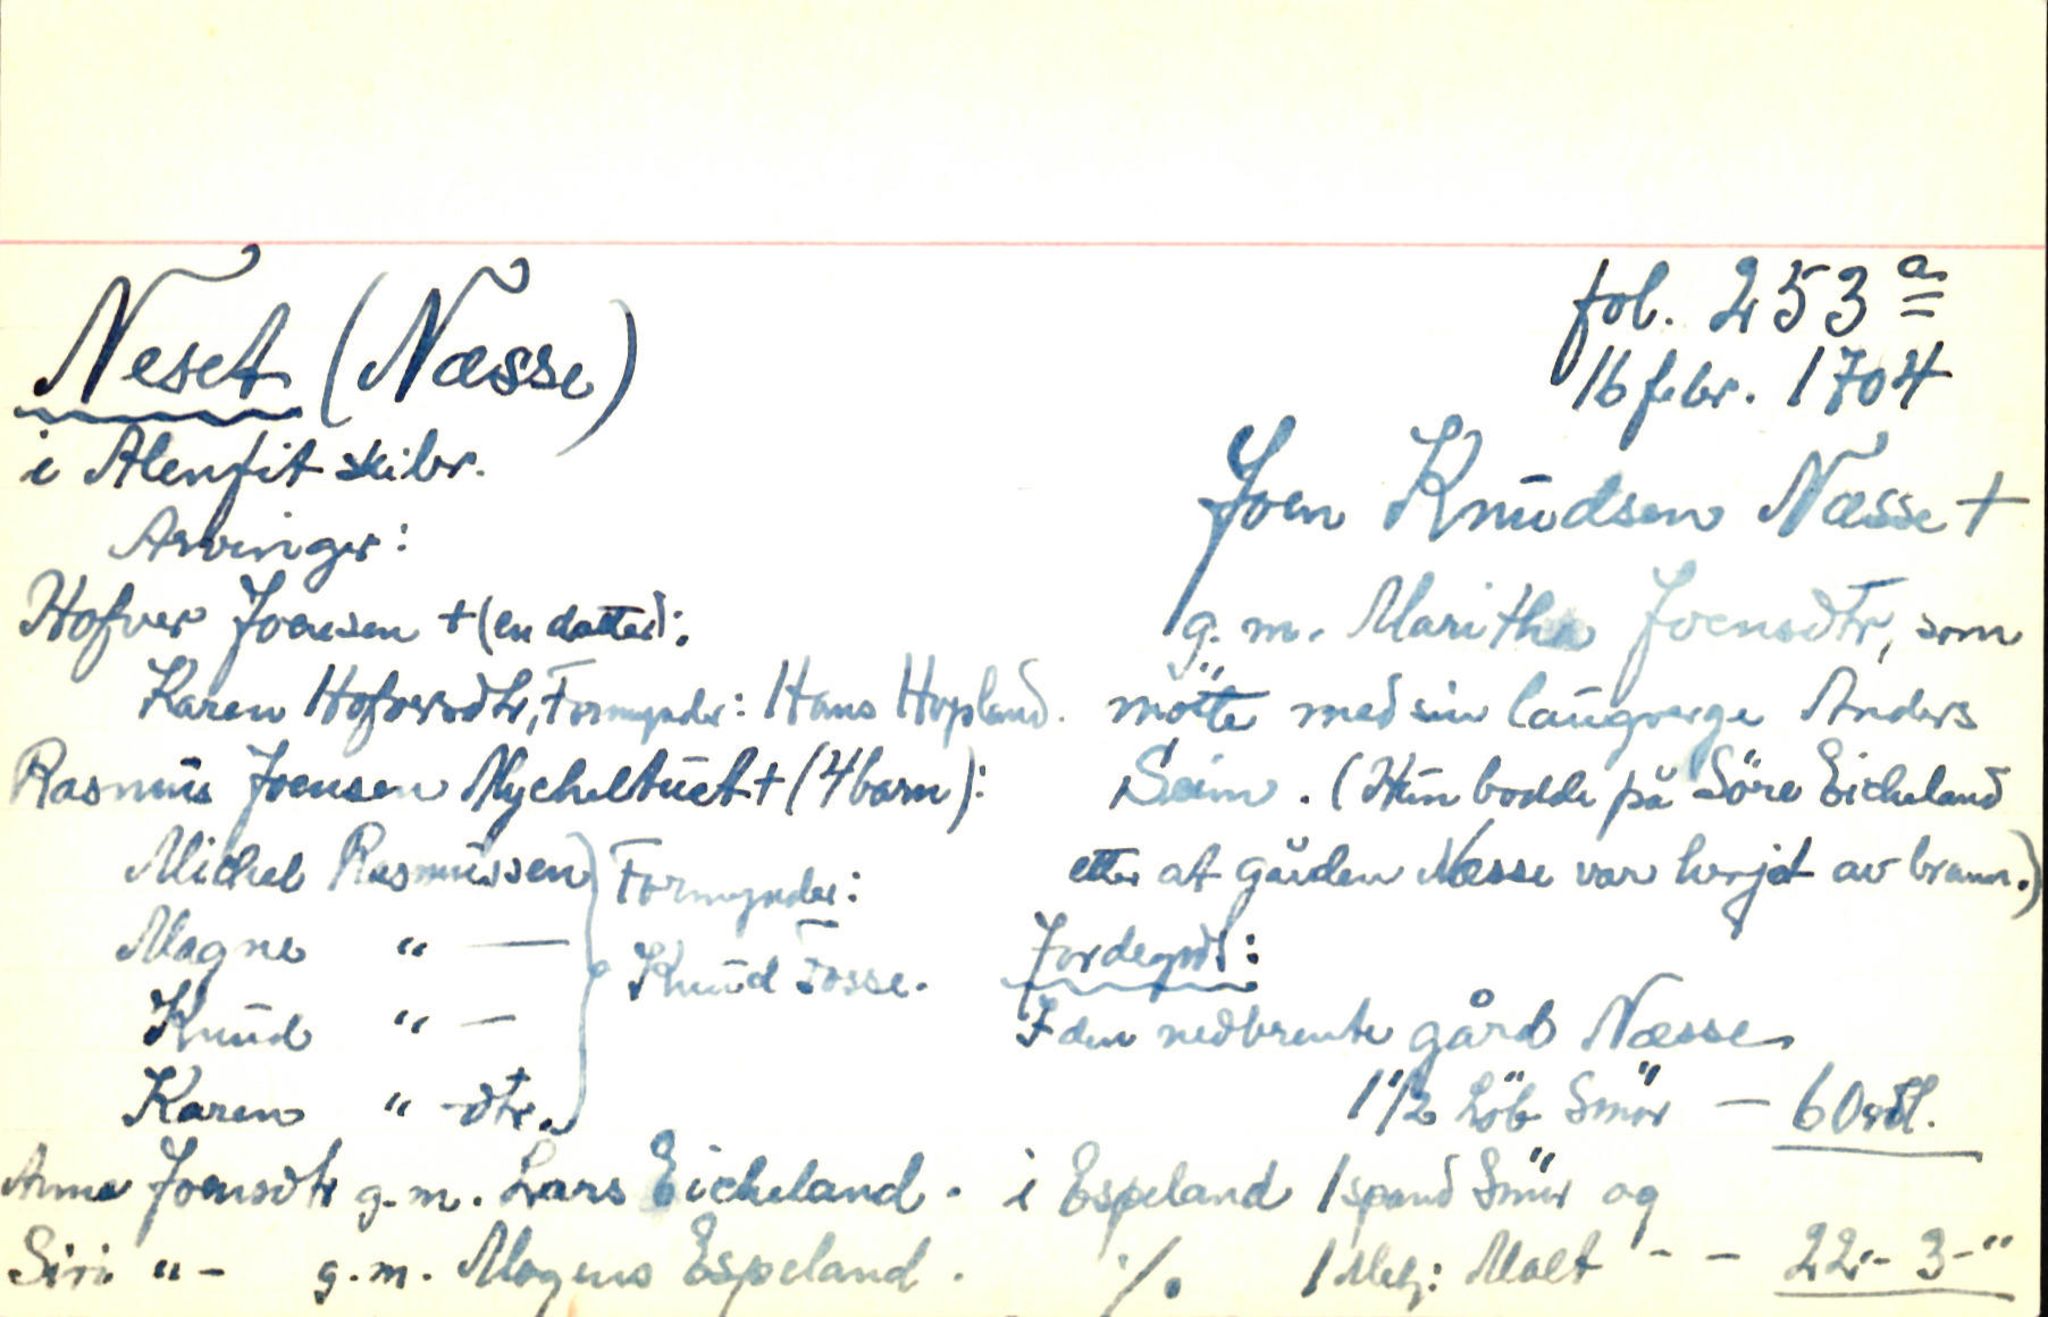 Neset (Næsse)
i Alenfit skibr.
Arvinger:
Hofver Joensen + (en datter):
Karen Hofversdtr, Formynder: Hans Hopland.
Rasmus Joensen Mycheltuet + (4 barn):
Michel Rasmussen
Magne " —
Knud " —
Karen " -dtr.
Formynder:
Knud Fosse.
Anna Joensdtr g.m. Lars Eicheland.
Siri " - g.m. Mogens Espeland.
fol. 253 a
16 febr. 1704
Joen Knudsen Næsse +
g. m. Maritha Joensdtr, som
mötte med sin laugverge Anders
Seim. (Hun bodde på Söre Eicheland
etter at gården Næsse var herjet av brann.)
Jordegods:
I den nedbrente gård Næsse
1 1/2 Löb Smör — 60 rdl.
i Espeland 1 spand Smör og
1 Mele: Malt - - 22 - 3 - "
./.